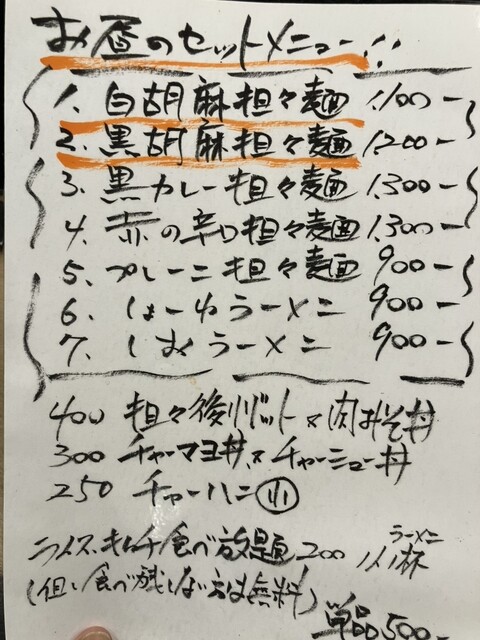 お昼のセットメニュー!!
1. 白胡麻担々麺 1,100-
2. 黒胡麻担々麺 1,200-
3. 黒カレー担々麺 1,300-
4. 赤の辛口担々麺 1,300-
5. プレーン担々麺 900-
6. しょーゆラーメン 900-
7. しおラーメン 900-
400 担々後リゾット 肉みそ丼
300 チャーマヨ丼 チャーシュー丼
250 チャーハン小
ライス、キムチ食べ放題200 ラーメン 杯
(但し食べ残しない方は無料)
単品500-